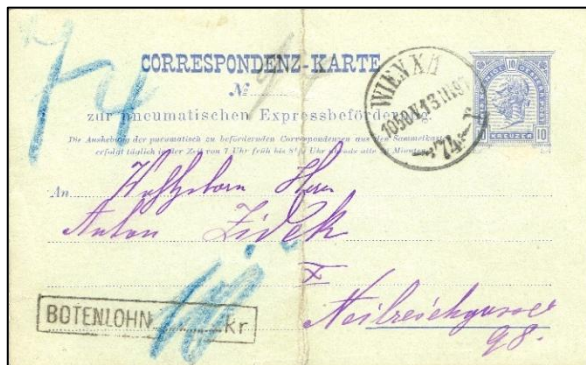 74
CORRESPONDENZ-KARTE
№
zur pneumatischen Expressbeförderung.
Die Aushebung der pneumatisch zu befördernden Correspondenzen aus den Sammelkästen
erfolgt täglich in der Zeit von 7 Uhr früh bis Uhr abends alle 20 Minuten.
WIEN
74
10
KREUZER
10 10
An Herrn
Anton Zidek
X
Neilreichgasse
98.
BOTENLOHN kr
10